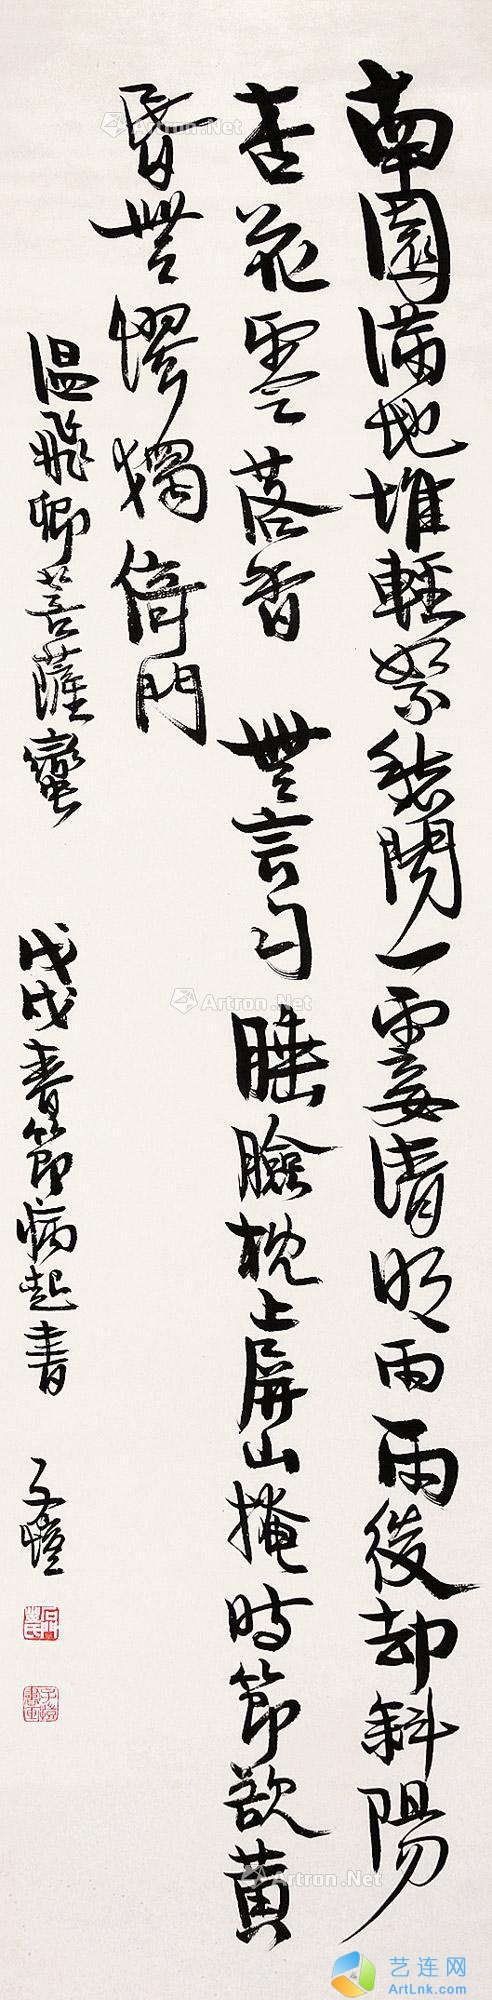 南園滿地堆輕絮愁聞一霎清明雨雨後却斜陽
杏花零落香 無言勻睡臉枕上屏山掩時節欲黃
昏無憀獨倚門
温飛卿菩薩蠻 戊戌春節病起書 子愷
Artron.Net
Artron.Net
Artron.Net
艺连网
ArtLnk.com